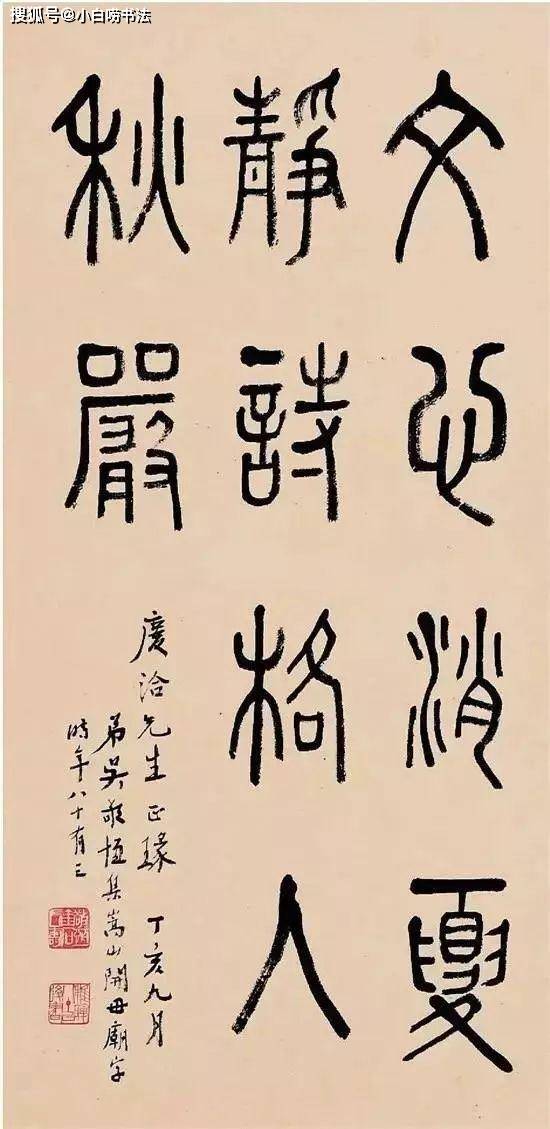 搜狐号@小白唠书法
文心消夏
静诗格人
秋嚴
慶洽先生正瑑 丁亥九月
弟吴敬恒集嵩山開母廟字
時年八十有三